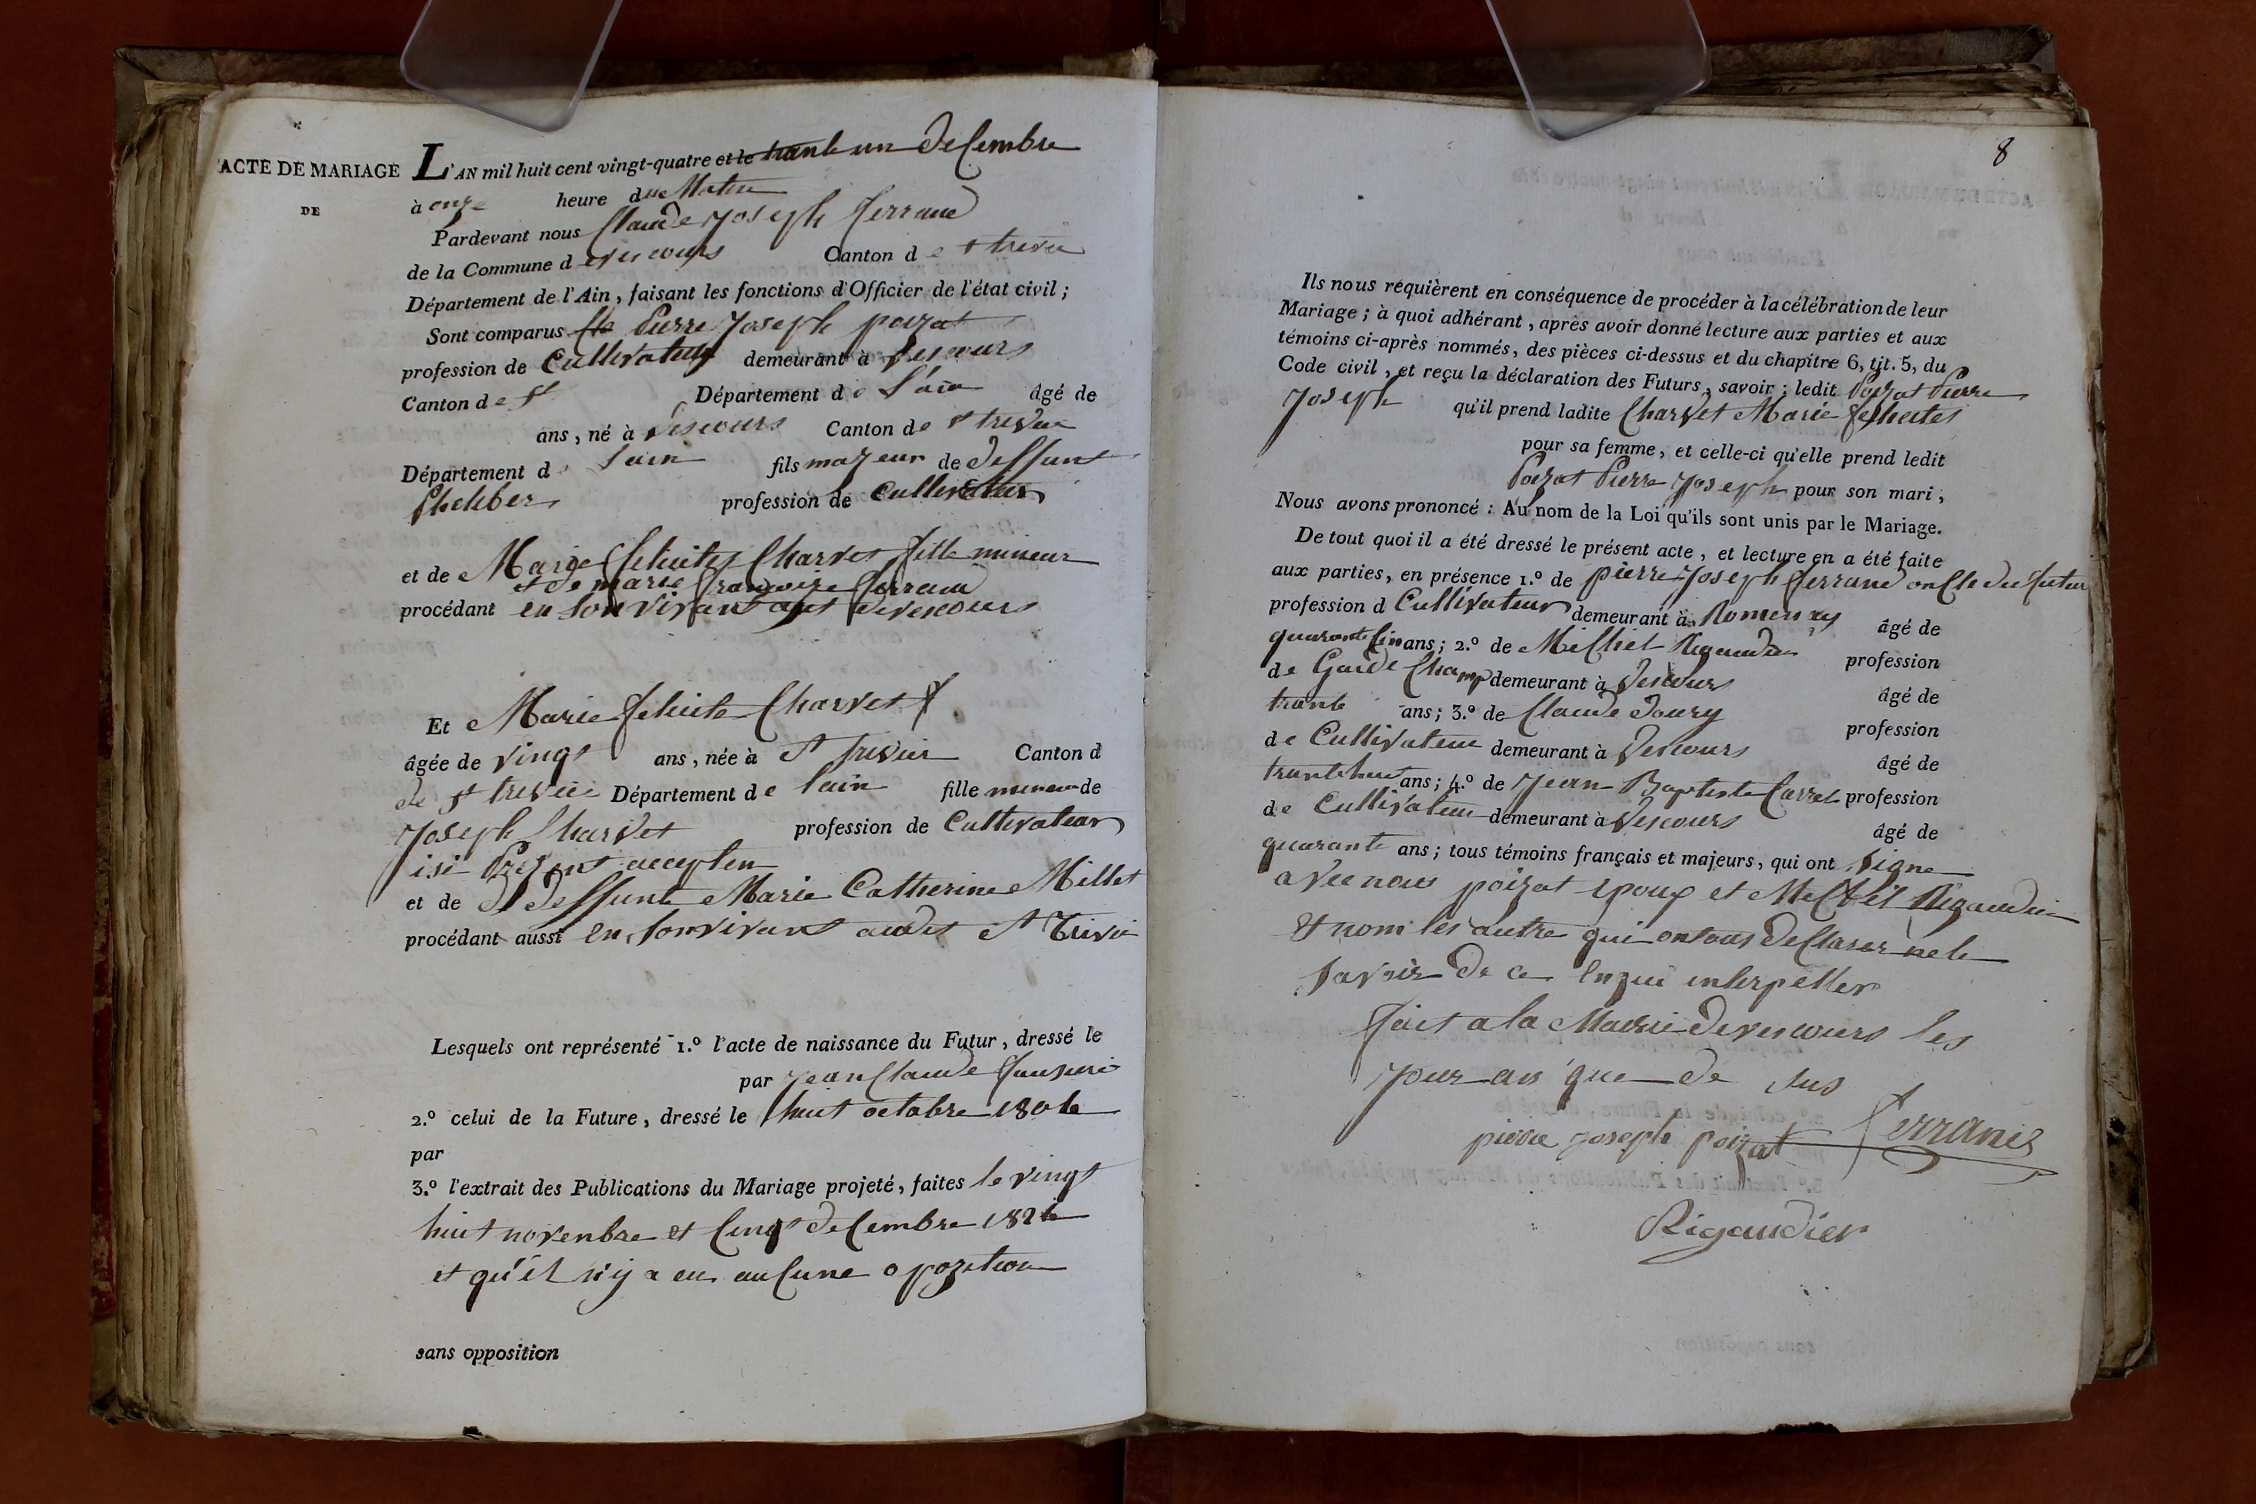 ACTE DE MARIAGE
DE
L'AN mil huit cent vingt-quatre et le trante un decembre
à onze heure du Matin
Pardevant nous Claude Joseph ferrand
de la Commune de vescours Canton de st trivie
Département de l'Ain, faisant les fonctions d'Officier de l'état civil;
Sont comparus Pierre Joseph poizat
profession de Cultivateur demeurant à vescours
Canton de st Département de L'ain âgé de
ans, né à vescours Canton de st trivie
Département de Lain fils mazeur de deffunt
Pheliber profession de Cultivateur
et de Marie felicites Charvet fille mineur
et de marie francoize ferrand
procédant en son vivant devescours
Et Marie felicite Charvet
âgée de vingt ans, née à st trivier Canton d
de st trivie Département de lain fille mineur de
Joseph Charvet profession de Cultivateur
isi Prezent accepten
et de deffunte Marie Catherine Millet
procédant aussi en sonvivant audit st Trivie
Lesquels ont représenté 1.º l'acte de naissance du Futur, dressé le
par Jean Claude
2.º celui de la Future, dressé le huit octobre 1804
par
3.º l'extrait des Publications du Mariage projeté, faites le vingt
huit novenbre et Cinq decembre 1824
et qu'il n'y a eu aucune opozition
sans opposition
8
Ils nous requièrent en conséquence de procéder à la célébration de leur
Mariage; à quoi adhérant, après avoir donné lecture aux parties et aux
témoins ci-après nommés, des pièces ci-dessus et du chapitre 6, tit. 5, du
Code civil, et reçu la déclaration des Futurs, savoir; ledit Poizat Pierre
Joseph qu'il prend ladite Charvet Marie felicites
pour sa femme, et celle-ci qu'elle prend ledit
Poizat Pierre Joseph pour son mari;
Nous avons prononcé: Au nom de la Loi qu'ils sont unis par le Mariage.
De tout quoi il a été dressé le présent acte, et lecture en a été faite
aux parties, en présence 1.º de pierre Joseph ferrand oncle du futur
profession d Cultivateur demeurant à Romenay âgé de
quarante Cin ans; 2.º de Michel Rigaudier profession
de Garde Champ demeurant à Vescours âgé de
trante ans; 3.º de Claude Joury profession
de Cultivateur demeurant à Vescours âgé de
trante huit ans; 4.º de Jean Baptiste Carret profession
de Cultivateur demeurant à Vescours âgé de
quarante ans; tous témoins français et majeurs, qui ont signe
avec nous poizat epoux et Michel Rigaudier
et nom les autre qui ontous declarer nele
savoir de ce enqui interpeller
fait a la Mairie devescours les
jour an que de sus
pierre joseph poizat ferrand
Rigaudier